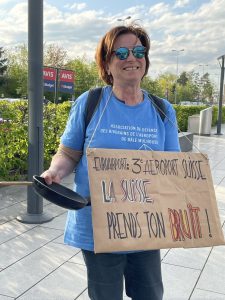 AVIS
AVIS
ASSOCIATION DE DÉFENSE
DES RIVERAINS DE L'AÉROPORT
DE BÂLE MULHOUSE
EUROAIRPORT: 3e AÉROPORT SUISSE
LA SUISSE
PRENDS TON BRUIT !